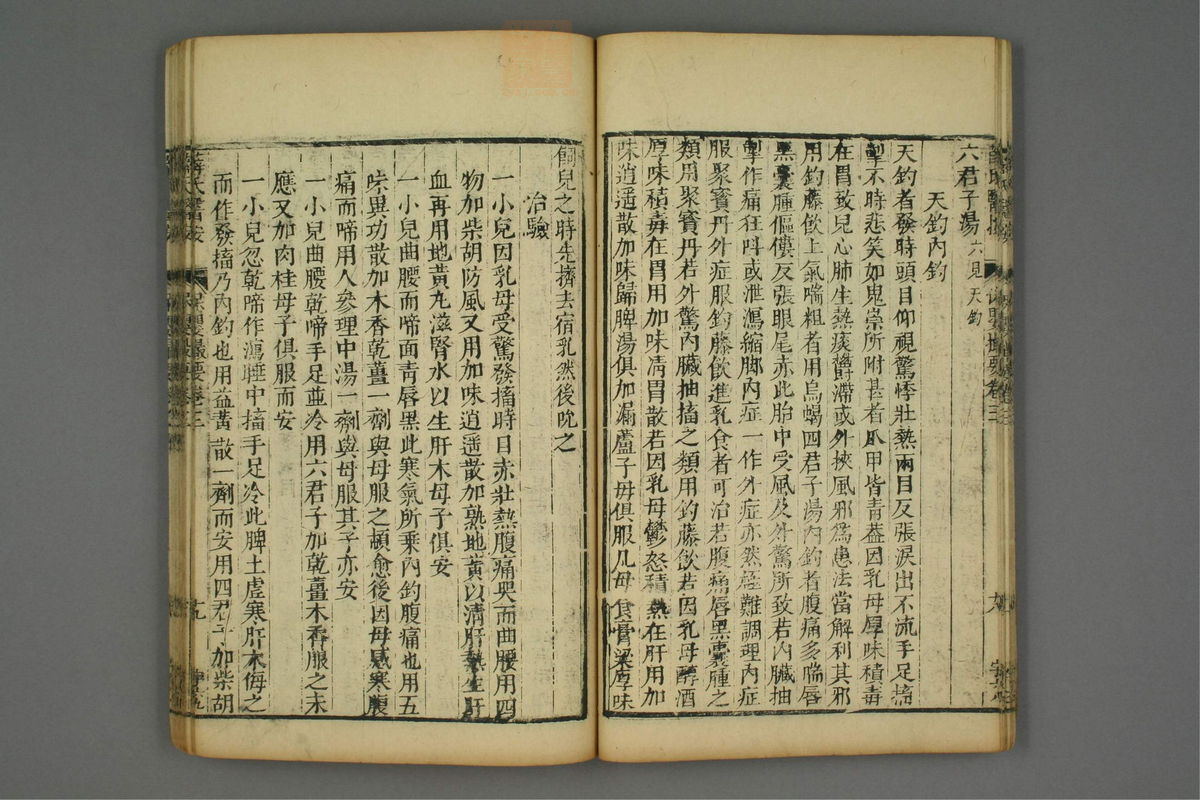 六君子湯六見天釣
天釣內釣
天釣者發時頭目仰視驚悸壯熱兩目反張淚出不流手足搐
掣不時悲笑如鬼祟所附甚者爪甲皆青蓋因乳母厚味積毒
在胃致兒心肺生熱痰鬱滯或外挾風邪爲患法當解利其邪
用釣藤飲上氣喘粗者用烏蝎四君子湯內釣者腹痛多喘唇
黑囊腫傴僂反張眼尾赤此胎中受風及外驚所致若內臟抽
掣作痛狂呌或泄瀉縮脚內症一作外症亦然極難調理內症
服聚寶丹外症服釣藤飲進乳食者可治若腹痛唇黑囊腫之
類用聚寶丹若外驚內臟抽搐之類用釣藤飲若因乳母醇酒
厚味積毒在胃用加味清胃散若因乳母鬱怒積熱在肝用加
味逍遥散加味歸脾湯俱加漏蘆子母俱服凡母食膏粱厚味
飼兒之時先擠去宿乳然後吮之
治驗
一小兒因乳母受驚發搐時目赤壯熱腹痛哭而曲腰用四
物加柴胡防風又用加味逍遥散加熟地黃以清肝熱生肝
血再用地黃丸滋腎水以生肝木母子俱安
一小兒曲腰而啼面青唇黑此寒氣所乘內釣腹痛也用五
味異功散加木香乾薑一劑與母服之頓愈後因母感寒腹
痛而啼用人參理中湯一劑與母服其子亦安
一小兒曲腰乾啼手足並冷用六君子加乾薑木香服之未
應又加肉桂母子俱服而安
一小兒忽乾啼作瀉睡中搐手足冷此脾土虛寒肝木侮之
而作發搐乃內釣也用益黃散一劑而安用四君子加柴胡